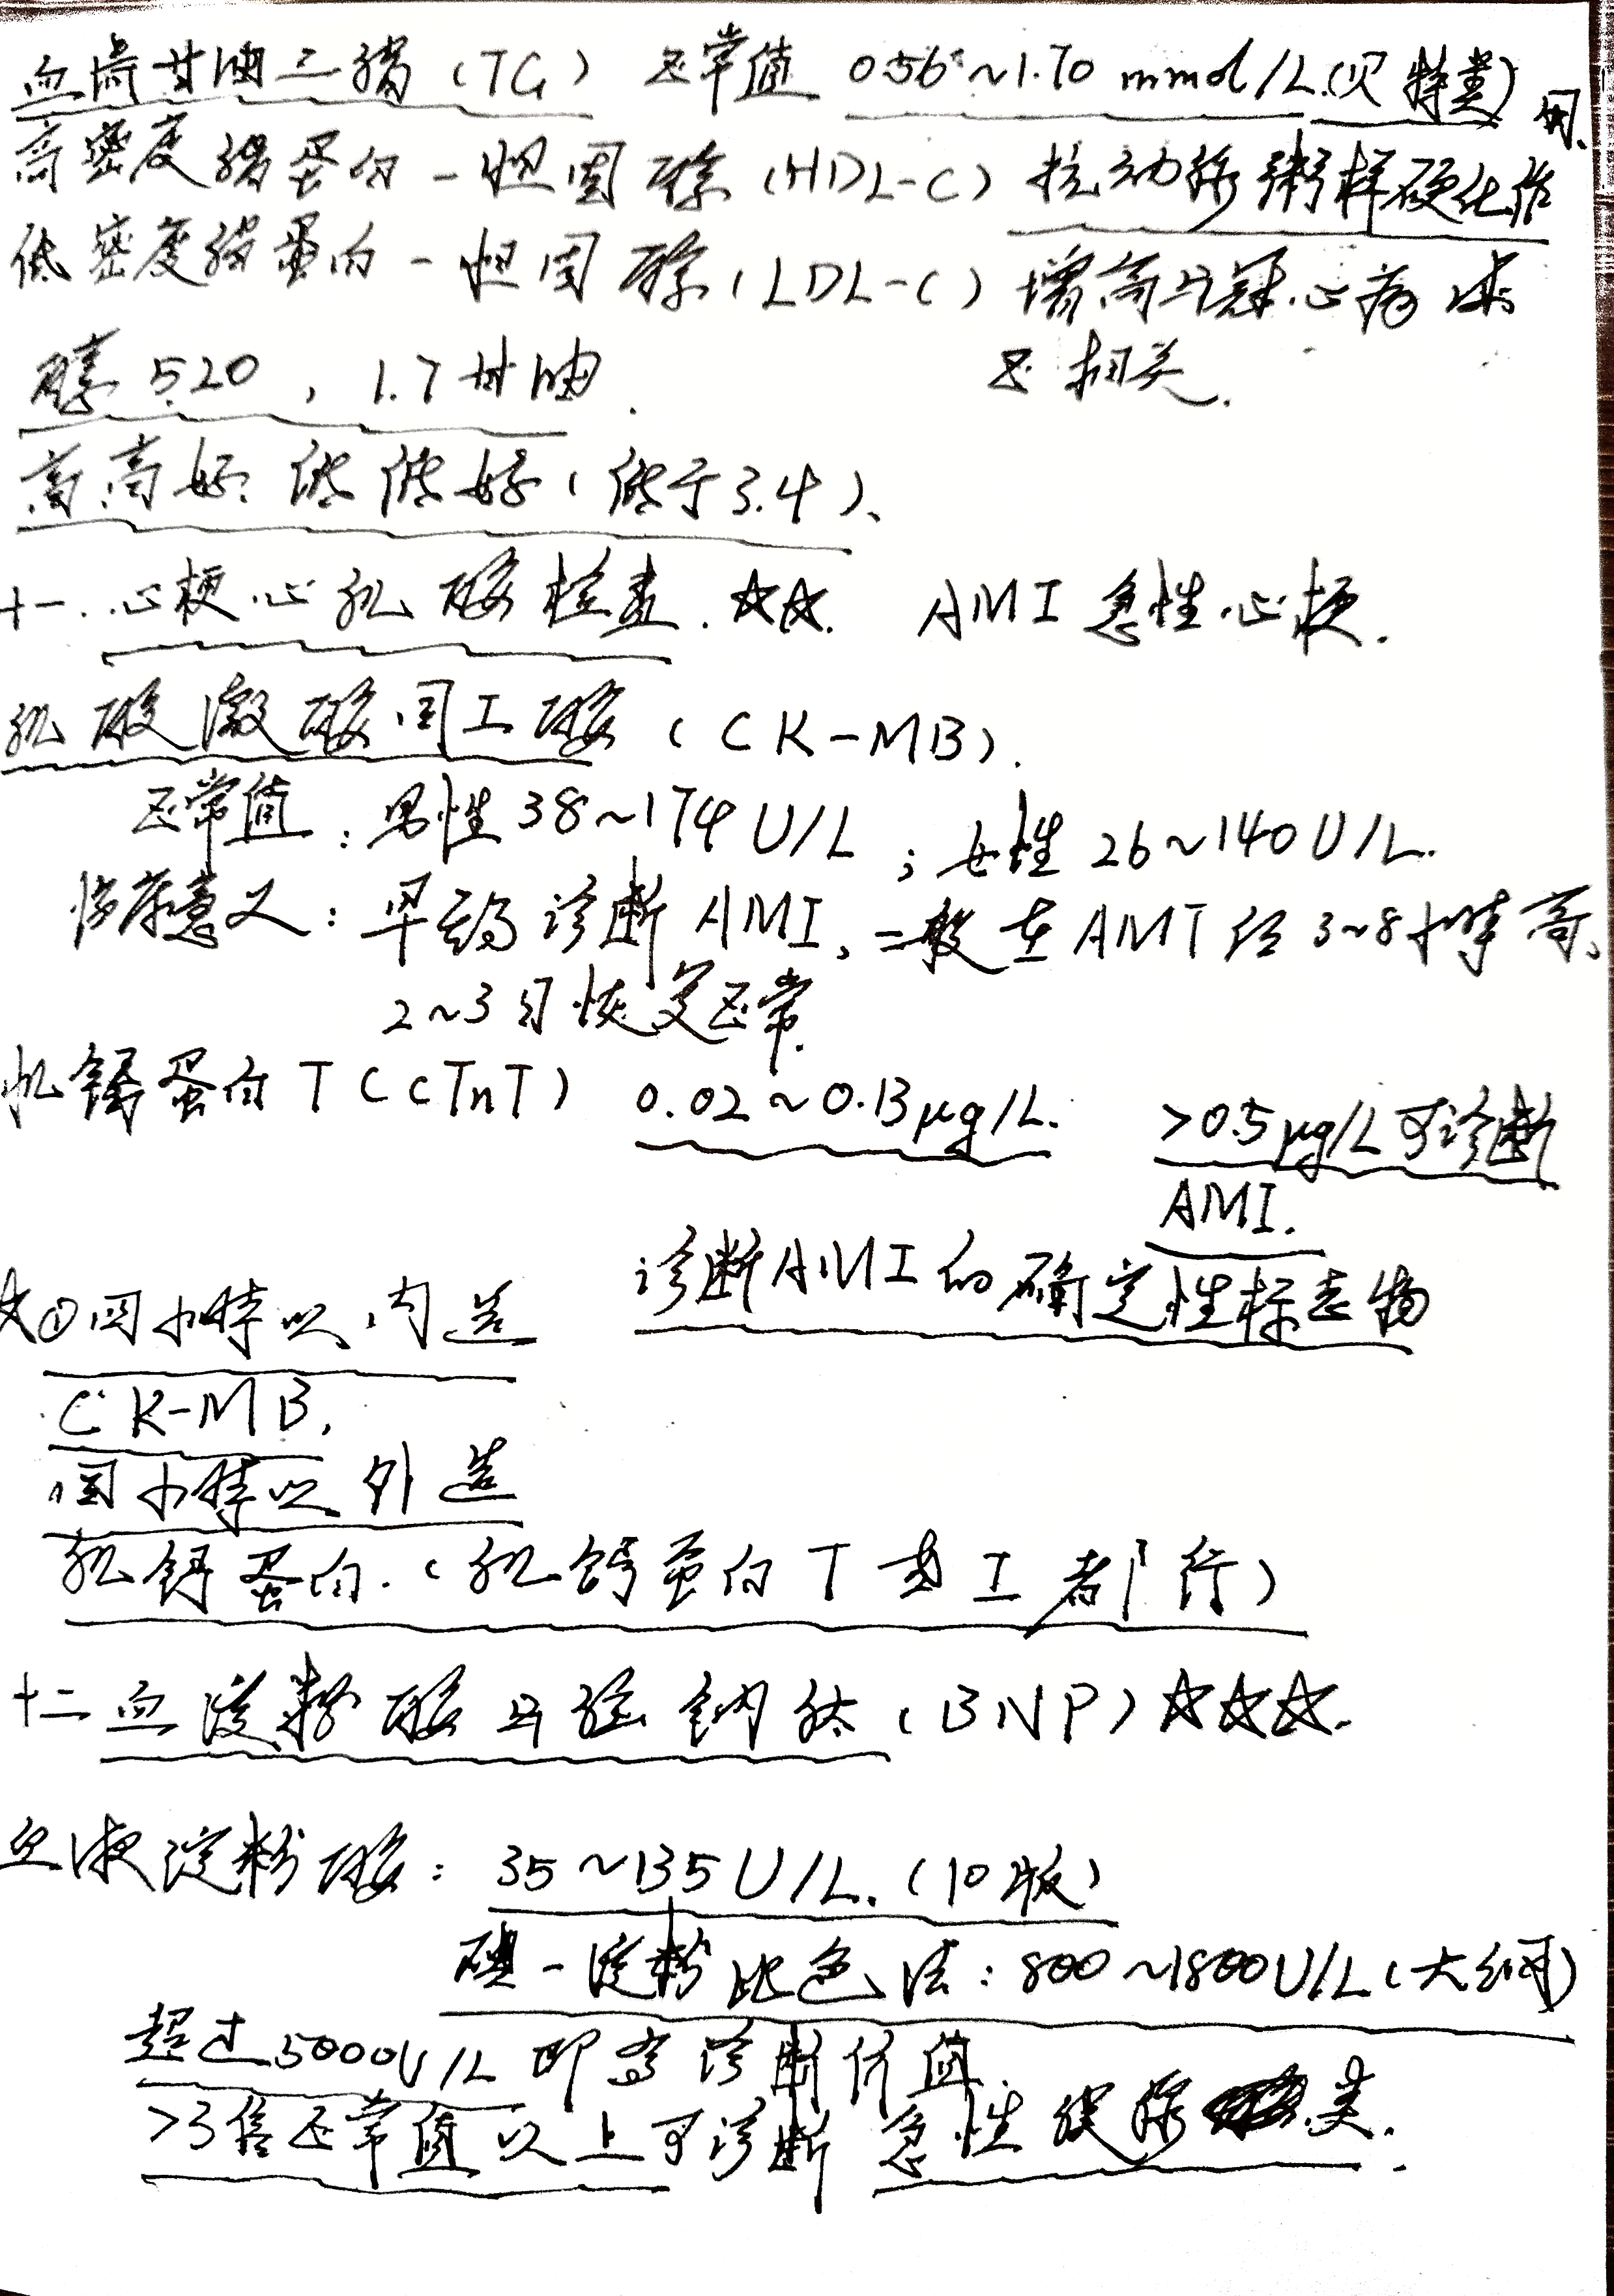 血清甘油三酯（TG） 正常值 0.56~1.70 mmol/L.(贝特类)
高密度脂蛋白-胆固醇（HDL-C）抗动脉粥样硬化作用.
低密度脂蛋白-胆固醇（LDL-C）增高与冠心病
正相关.
醇 5.20，1.7甘油.
高高好 低低好（低于3.4）、
十一.心梗心肌酶检查.☆☆. AMI 急性心梗.
肌酸激酶同工酶（CK-MB）.
正常值：男性 38~174 U/L；女性 26~140 U/L.
临床意义：早期诊断 AMI，一般在 AMI 后 3~8小时高、
2~3日恢复正常.
肌钙蛋白T（cTnT） 0.02~0.13μg/L. >0.5μg/L可诊断
AMI.
诊断AMI的确定性标志物
☆①四小时以内选
CK-MB,
四小时以外选
肌钙蛋白.（肌钙蛋白T或I都行）
十二 血淀粉酶与脑钠肽（BNP）☆☆☆.
血液淀粉酶：35~135U/L.（10版）
碘-淀粉比色法：800~1800U/L（大纲）
超过5000U/L 即有诊断价值.
>3倍正常值以上可诊断 急性胰腺炎.